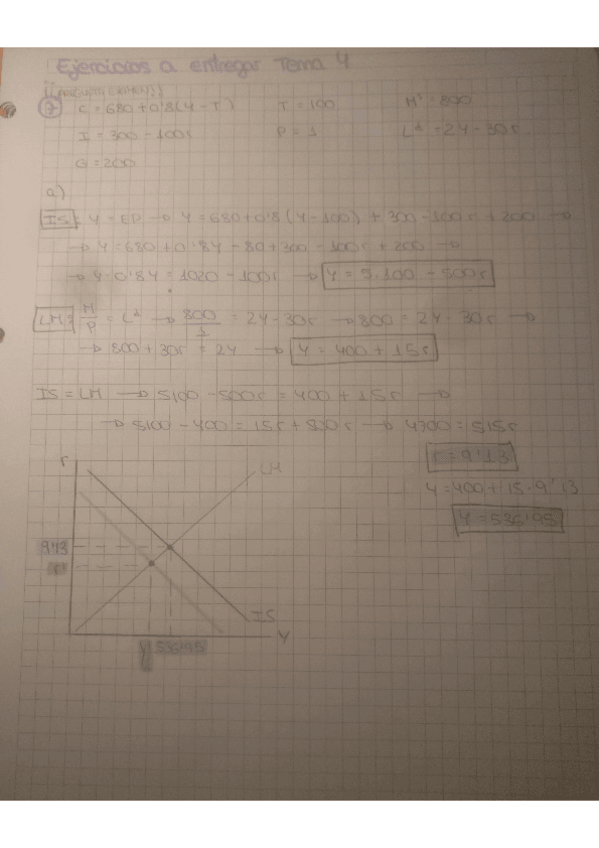 Ejercicios a entregar Tema 4
7 C = 680 + 0'8(Y - T) T = 100 M^s = 800
I = 300 - 100r P = 1 L^d = 2Y - 30r
G = 200
a)
IS: Y = ED → Y = 680 + 0'8(Y - 100) + 300 - 100r + 200 →
→ Y = 680 + 0'8Y - 80 + 300 - 100r + 200 →
→ Y - 0'8Y = 1020 - 100r → Y = 5.100 - 500r
LM: M/P = L^d → 800/1 = 2Y - 30r → 800 = 2Y - 30r →
→ 800 + 30r = 2Y → Y = 400 + 15r
IS = LM → 5100 - 500r = 400 + 15r →
→ 5100 - 400 = 15r + 500r → 4700 = 515r
r = 9'13
Y = 400 + 15 · 9'13
Y = 536'95
r
LM
9'13
IS
Y
536'95